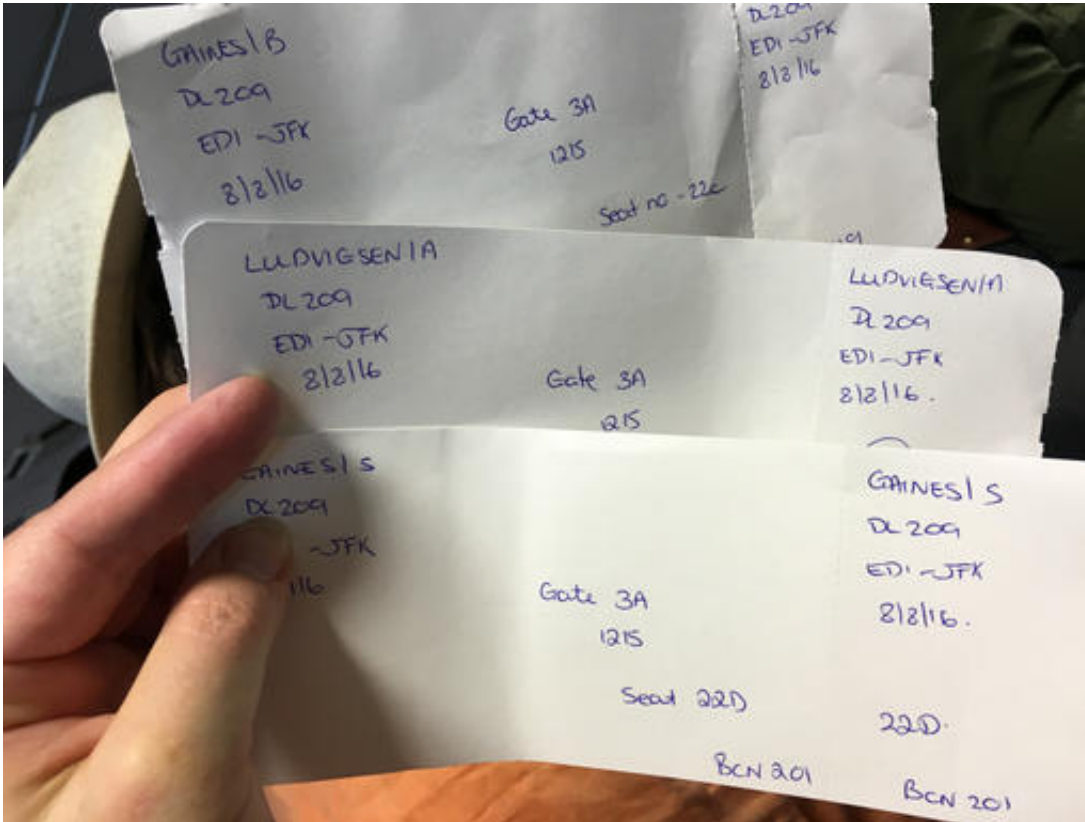 GAINES/B
DL209
EDI-JFK
8/8/16
Gate 3A
1215
Seat no - 22c
DL209
EDI-JFK
8/8/16
LUDVIGSEN/A
DL209
EDI-JFK
8/8/16
Gate 3A
1215
LUDVIGSEN/A
DL209
EDI-JFK
8/8/16.
GAINES/S
DL209
-JFK
/16
Gate 3A
1215
Seat 22D
BCN 201
GAINES/S
DL209
EDI-JFK
8/8/16.
22D.
BCN 201